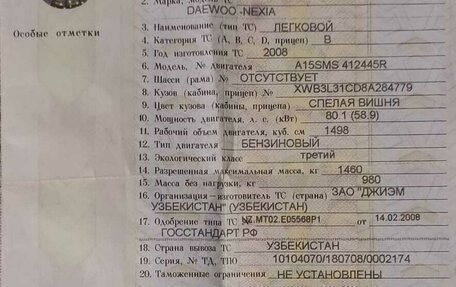 2. Марка, модель ТС
DAEWOO -NEXIA
3. Наименование (тип ТС) ЛЕГКОВОЙ
Особые отметки
4. Категория ТС (A, B, C, D, прицеп) B
5. Год изготовления ТС 2008
6. Модель, № двигателя A15SMS 412445R
7. Шасси (рама) № ОТСУТСТВУЕТ
8. Кузов (кабина, прицеп) № XWB3L31CD8A284779
9. Цвет кузова (кабины, прицепа) СПЕЛАЯ ВИШНЯ
10. Мощность двигателя, л. с. (кВт) 80.1 (58.9)
11. Рабочий объем двигателя, куб. см 1498
12. Тип двигателя БЕНЗИНОВЫЙ
13. Экологический класс третий
14. Разрешенная максимальная масса, кг 1460
15. Масса без нагрузки, кг 980
16. Организация-изготовитель ТС (страна) ЗАО "ДЖИЭМ
УЗБЕКИСТАН" (УЗБЕКИСТАН)
17. Одобрение типа ТС № UZ.MT02.E05568P1 от 14.02.2008
ГОССТАНДАРТ РФ
18. Страна вывоза ТС УЗБЕКИСТАН
19. Серия, № ТД, ТПО 10104070/180708/0002174
20. Таможенные ограничения НЕ УСТАНОВЛЕНЫ